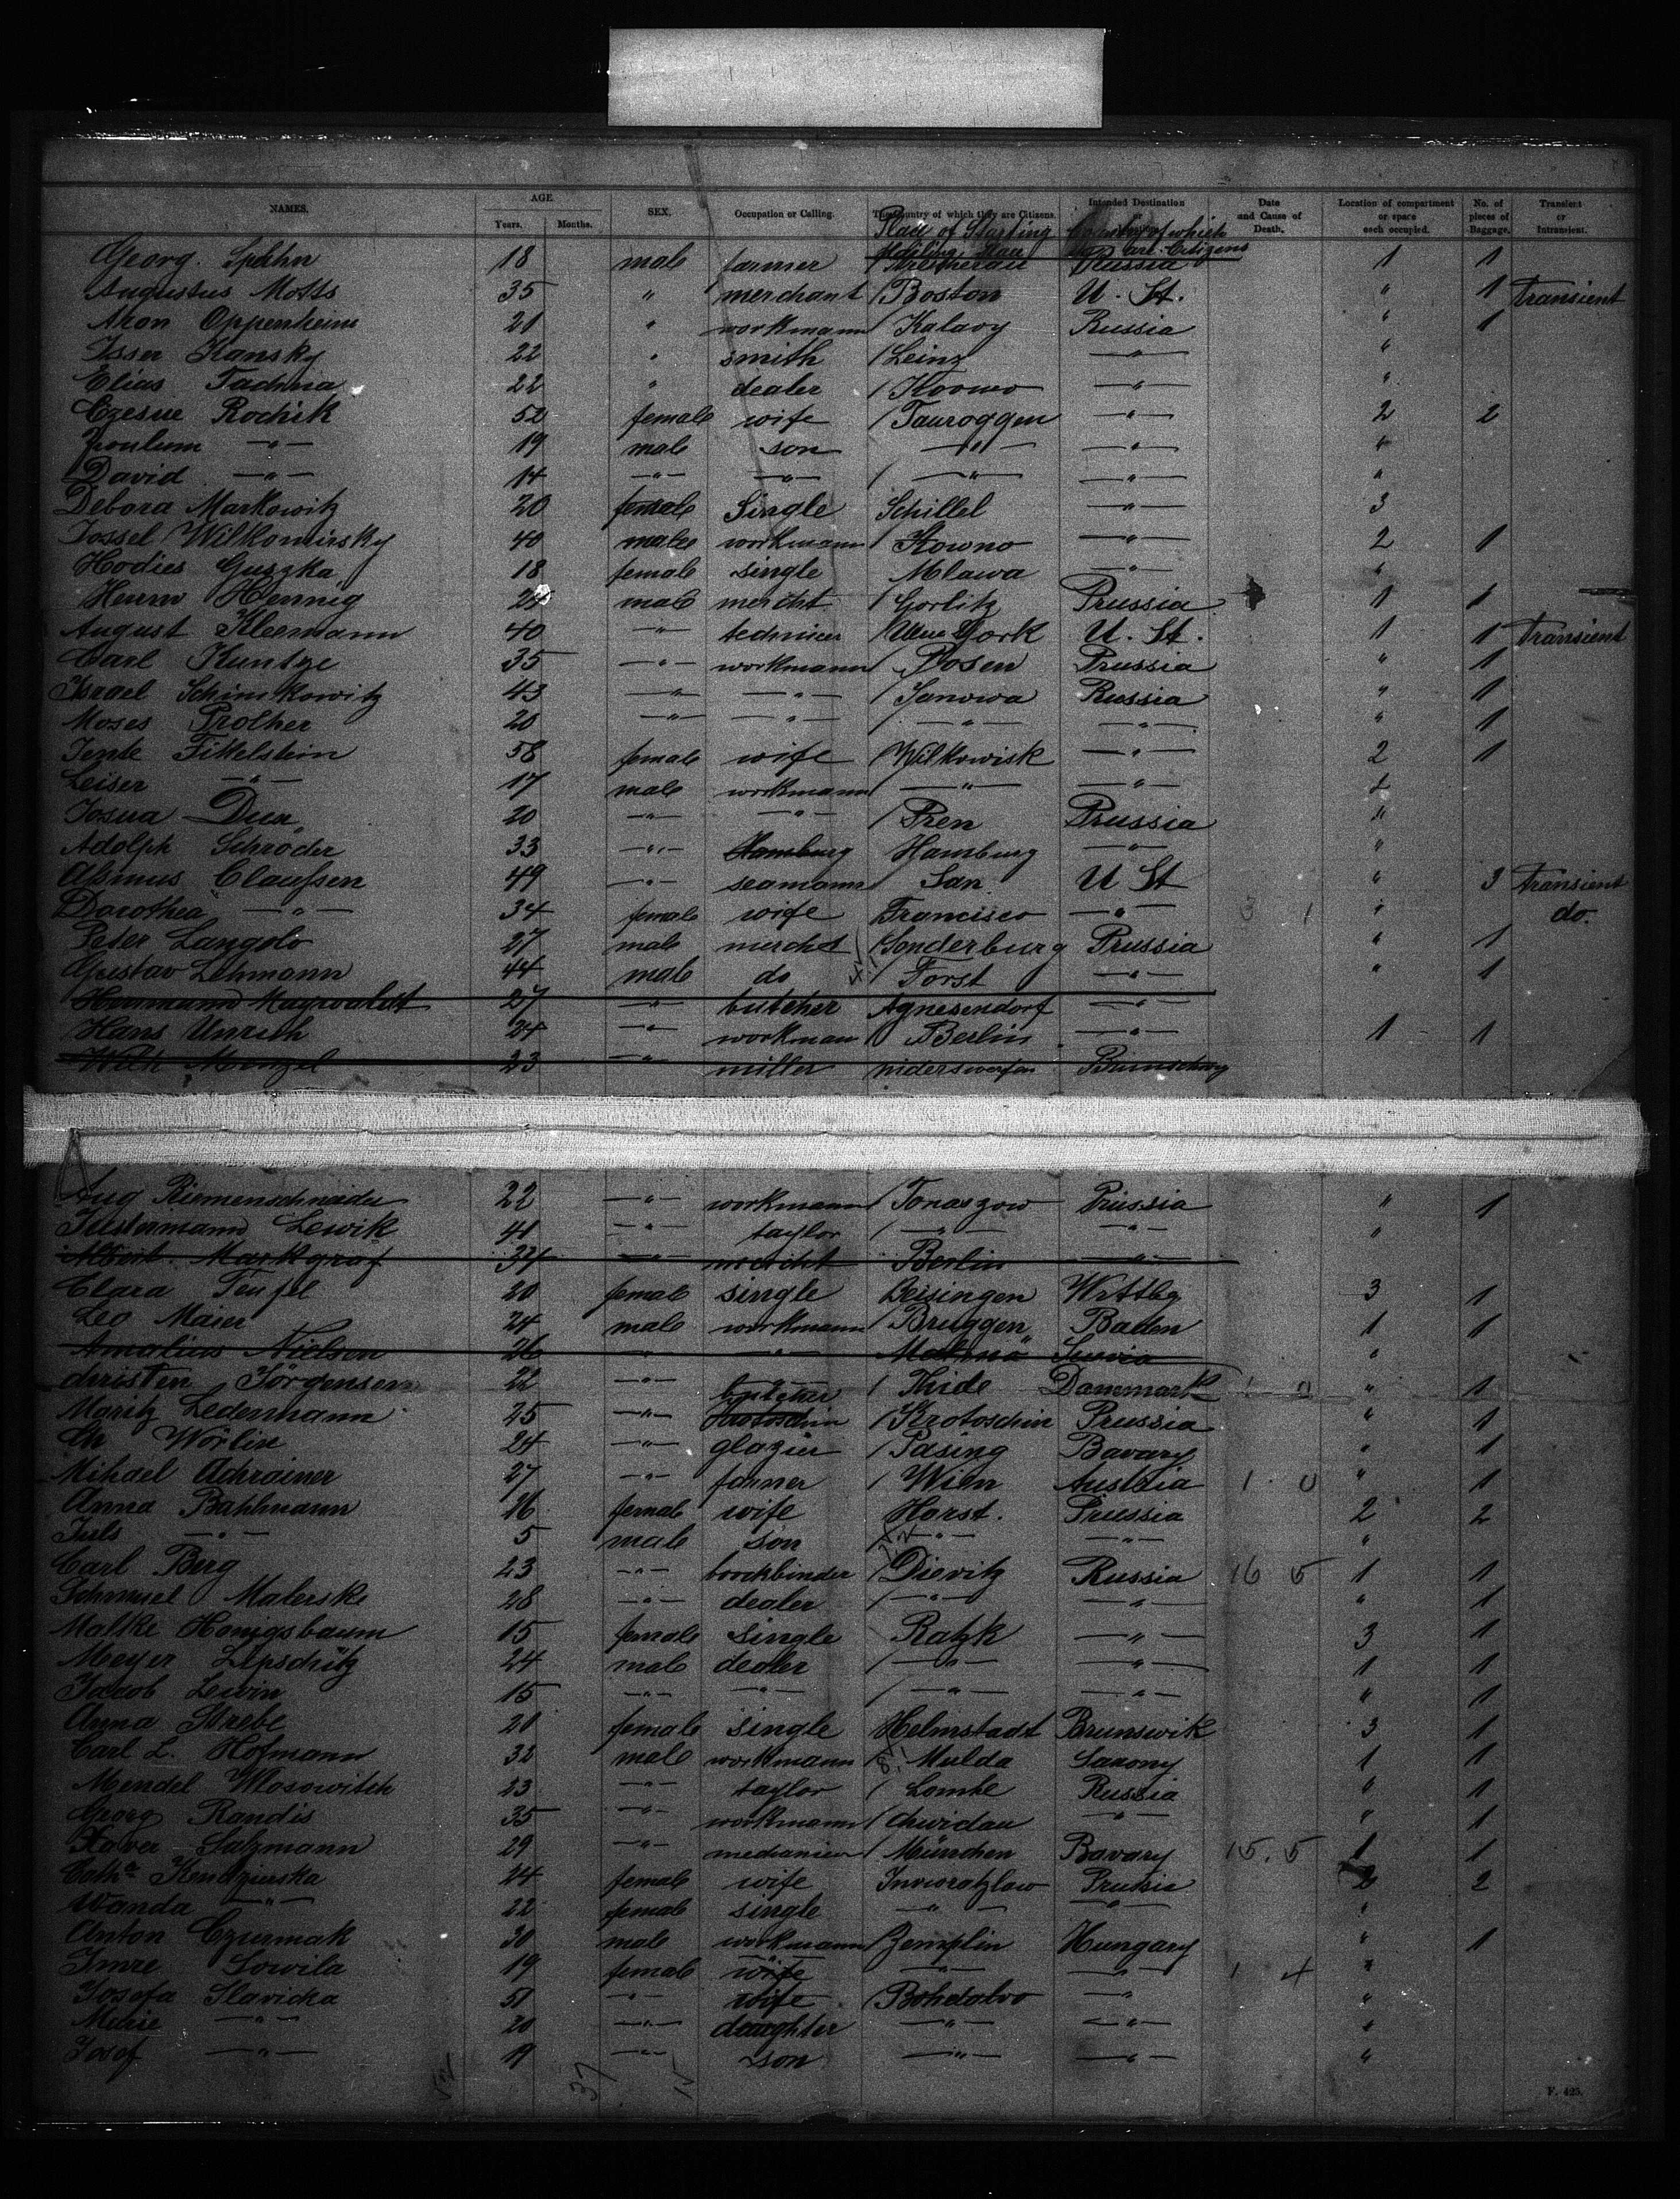 NAMES. AGE Years. Months. SEX. Occupation or Calling. The Country of which they are Citizens. Intended Destination Date and Cause of Death. Location of compartment or space each occupied. No. of pieces of Baggage. Transient or Intransient.
Place of Starting Country of which
they are Citizens
Georg. Spahn 18 male farmer Russia 1 1
Augustus Motts 35 " merchant Boston U. St. " 1 transient
Aron Oppenheim 21 " workmann Kalavy Russia " 1
Isser Kansky 22 " smith Leinz —"— "
Elias Tachna 22 " dealer Kovno —"— "
Czesne Rochik 52 female wife Tauroggen —"— 2 2
—"— 19 male son —"— —"— "
David —"— 14 —"— —"— —"— —"— "
Debora Markowitz 20 female Single Schillel —"— 3
Jossel Wilkomirsky 40 male workmann Kowno —"— 2 1
Hodies Guszka 18 female single Mlawa —"— "
Herm Hennig male mercht Gorlitz Prussia 1 1
August Kleemann 40 —"— New York U. St. 1 1 transient
Carl Kuntze 35 —"— workmann Posen Prussia " 1
Israel Schimkowitz 43 —"— —"— Janowa Russia " 1
Moses Prolher 20 —"— —"— —"— —"— " 1
Jente Fittelstein 58 female wife Wilkowisk —"— 2 1
Leiser —"— 17 male workmann —"— —"— 1
Josua Dux 20 —"— —"— Pren Prussia "
Adolph Schröder 33 —"— Hamburg Hamburg —"— "
Asmus Claussen 49 —"— seamann San U St " 3 transient
Dorothea —"— 34 female wife Francisco —"— " do.
Peter Langolo 27 male mercht Sonderburg Prussia " 1
Gustav Lehmann 44 male do Forst —"— " 1
Herrmann Maywaldt 27 —"— butcher Agnesendorf —"—
Hans Unruh 24 —"— workman Berlin —"— 1 1
Wilh Menzel 23 —"— miller
Aug Riemenschneider 22 —"— workmann Tonaszow Prussia " 1
Lewik 41 —"— taylor —"— —"— "
Markgraf 34 —"— mercht Berlin —"—
Clara Teufel 20 female single Deisingen Wrttbg 3 1
Leo Maier 24 male workmann Bruggen Baden 1 1
Amalius Nielsen 26 —"— —"— "
Christen Jörgensen 22 —"— butcher Thide Danemark 1 0 " 1
Moritz Ledermann 25 —"— Krotoschin Prussia " 1
Ch Wörlin 24 —"— glazier Pasing Bavary " 1
Mihael Achrainer 27 —"— farmer Wien Austria 1 0 " 1
Anna Bahlmann 26 female wife Horst. Prussia 2 2
Juls —"— 5 male son —"— —"— "
Carl Berg 23 —"— boockbinder Dievitz Russia 16 5 1 1
Schmuel Malerske 28 —"— dealer —"— —"— " 1
Malke Honigsbaum 15 female single Ratzk —"— 3 1
Meyer Lipschitz 24 male dealer —"— —"— 1 1
Jacob Lewin 15 —"— —"— —"— —"— " 1
Anna Strebe 20 female single Helmstadt Brunswik 3 1
Carl L. Hofmann 32 male workmann Mulda Saxony 1 1
Mendel Wlosowitsch 23 —"— taylor Lomke Russia " 1
Georg Randis 35 —"— workmann Chwidau —"— " 1
Xaver Salzmann 29 —"— München Bavary 15. 5 1 1
Cath^a Kendzierska 44 female wife Inworatzlaw Prussia 2 2
Wanda —"— 22 female single —"— —"— "
Anton Czurmak 30 male workmann Zemplin Hungary " 1
Imre Sowila 19 female wife —"— —"— 1 4 "
Josefa Slavicka 51 —"— wife Bohdalvo —"— "
—"— 20 —"— daughter —"— —"— "
Josef —"— 19 —"— son —"— —"— "
37
F. 425.